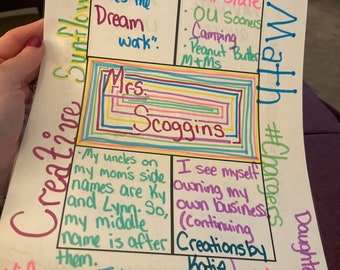 is the
Dream
work".
OU Sooners
Camping
Peanut Butter
M+Ms
Math
Creative
#Chargers
Mrs.
Scoggins
• My uncles on
my mom's side
names are Ky
and Lynn. So,
my middle
name is after
them.
I see myself
owning my
own business
(continuing
Creations by
Katie